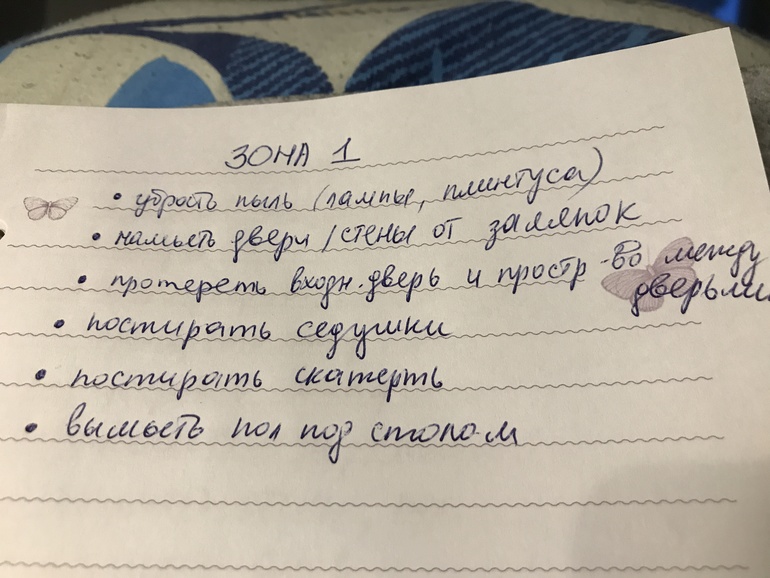 ЗОНА 1
• убрать пыль (лампы, плинтуса)
• намыть двери / стены от заляпок
• протереть входн. дверь и простр-во между
дверьми
• постирать седушки
• постирать скатерть
• вымыть пол под столом